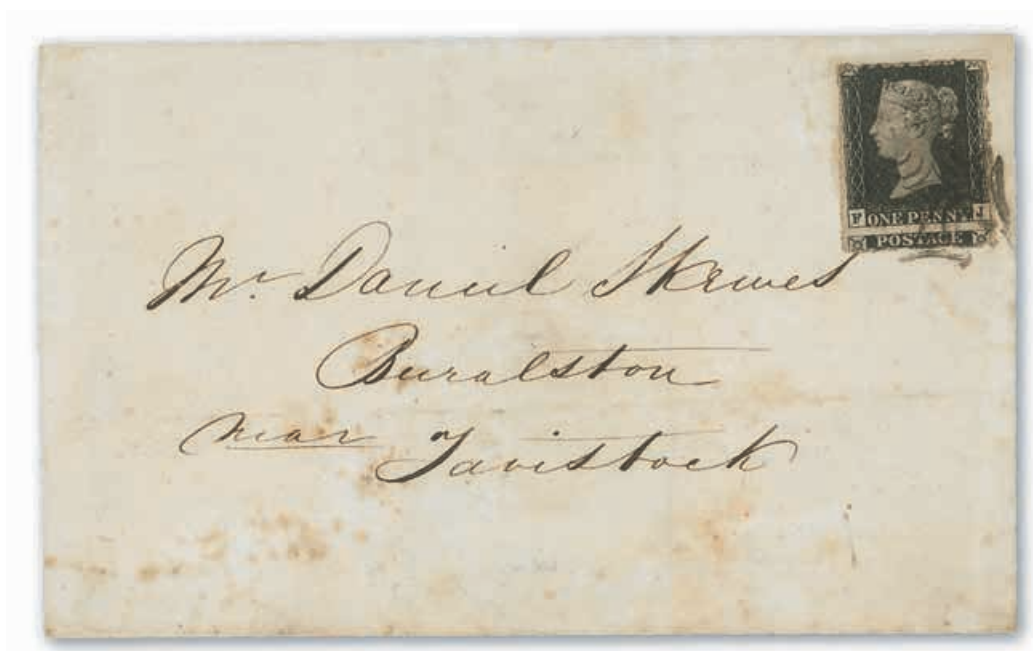 F ONE PENNY J
POSTAGE
Mr. Daniel Skewes
Buralston
near Tavistock